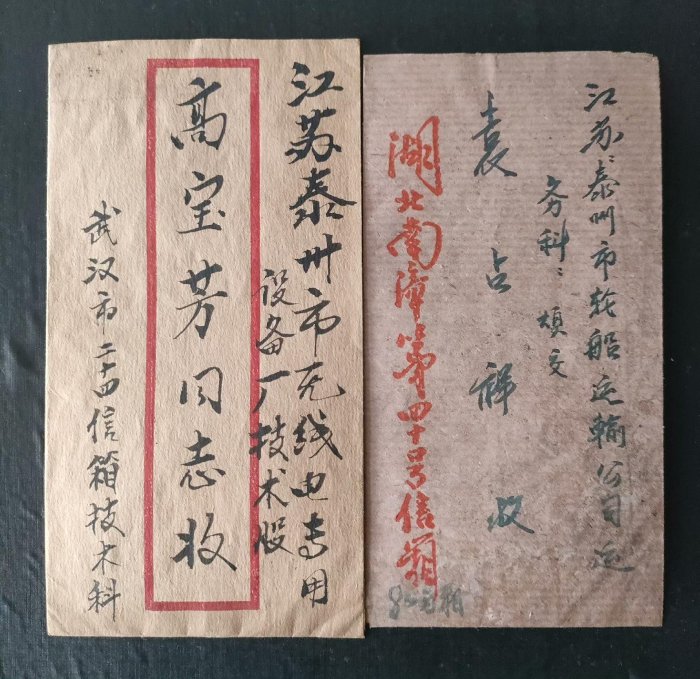 江苏泰州市无线电专用
设备厂技术股
高宝芳同志收
武汉市二十四信箱技术科
江苏泰州市轮船运输公司运
务科 烦交
袁占祥收
湖北南漳第四十号信箱